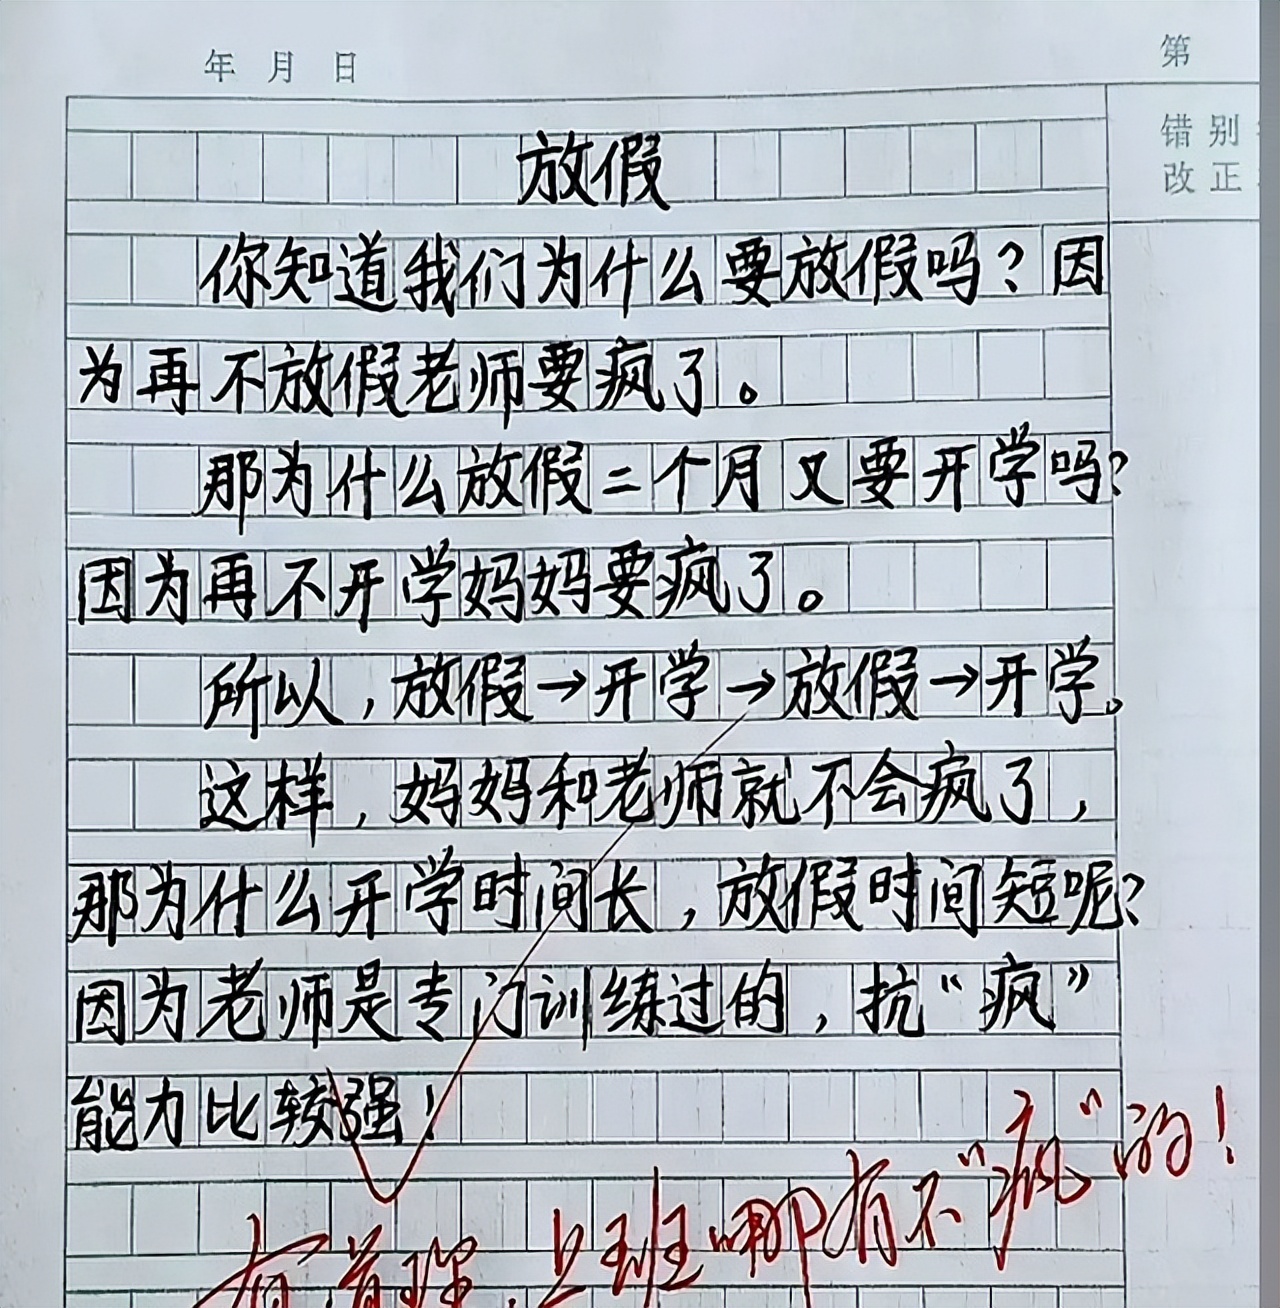 年 月 日
第
错别
改正
放假
你知道我们为什么要放假吗？因
为再不放假老师要疯了。
那为什么放假二个月又要开学吗？
因为再不开学妈妈要疯了。
所以，放假→开学→放假→开学。
这样，妈妈和老师就不会疯了，
那为什么开学时间长，放假时间短呢？
因为老师是专门训练过的，抗“疯”
能力比较强！
有道理，上班哪有不“疯”的！